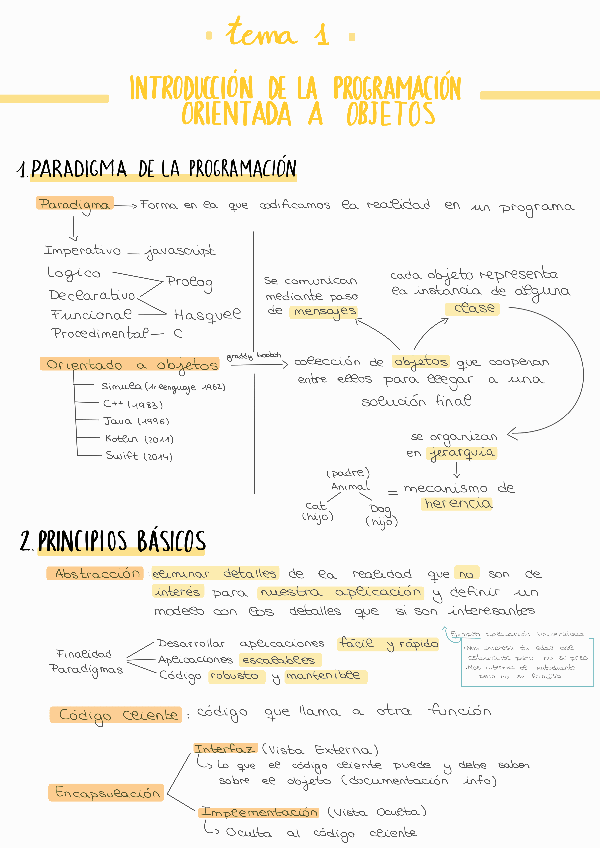 tema 1
INTRODUCCIÓN DE LA PROGRAMACIÓN
ORIENTADA A OBJETOS
1. PARADIGMA DE LA PROGRAMACIÓN
Paradigma → Forma en la que codificamos la realidad en un programa
Imperativo — javascript
Logico
Prolog
Declarativo
Funcional — Hasquel
Procedimental — C
Orientado a objetos
graddy booch
colección de objetos que cooperan
entre ellos para llegar a una
solución final
Simula (1r lenguaje 1962)
C++ (1983)
Java (1996)
Kotlin (2011)
Swift (2014)
Se comunican
mediante paso
de mensajes
cada objeto representa
la instancia de alguna
clase
se organizan
en jerarquia
mecanismo de
herencia
=
(padre)
Animal
Cat
(hijo)
Dog
(hijo)
2. PRINCIPIOS BÁSICOS
Abstracción eliminar detalles de la realidad que no son de
interés para nuestra aplicación y definir un
modelo con los detalles que si son interesantes
Finalidad
Paradigmas
Desarrollar aplicaciones fácil y rápido
Aplicaciones escalables
Código robusto y mantenible
Código cliente: código que llama a otra función
Encapsulación
Interfaz (Vista Externa)
Lo que el código cliente puede y debe saber
sobre el objeto (documentación info)
Implementación (Vista Oculta)
Oculta al código cliente